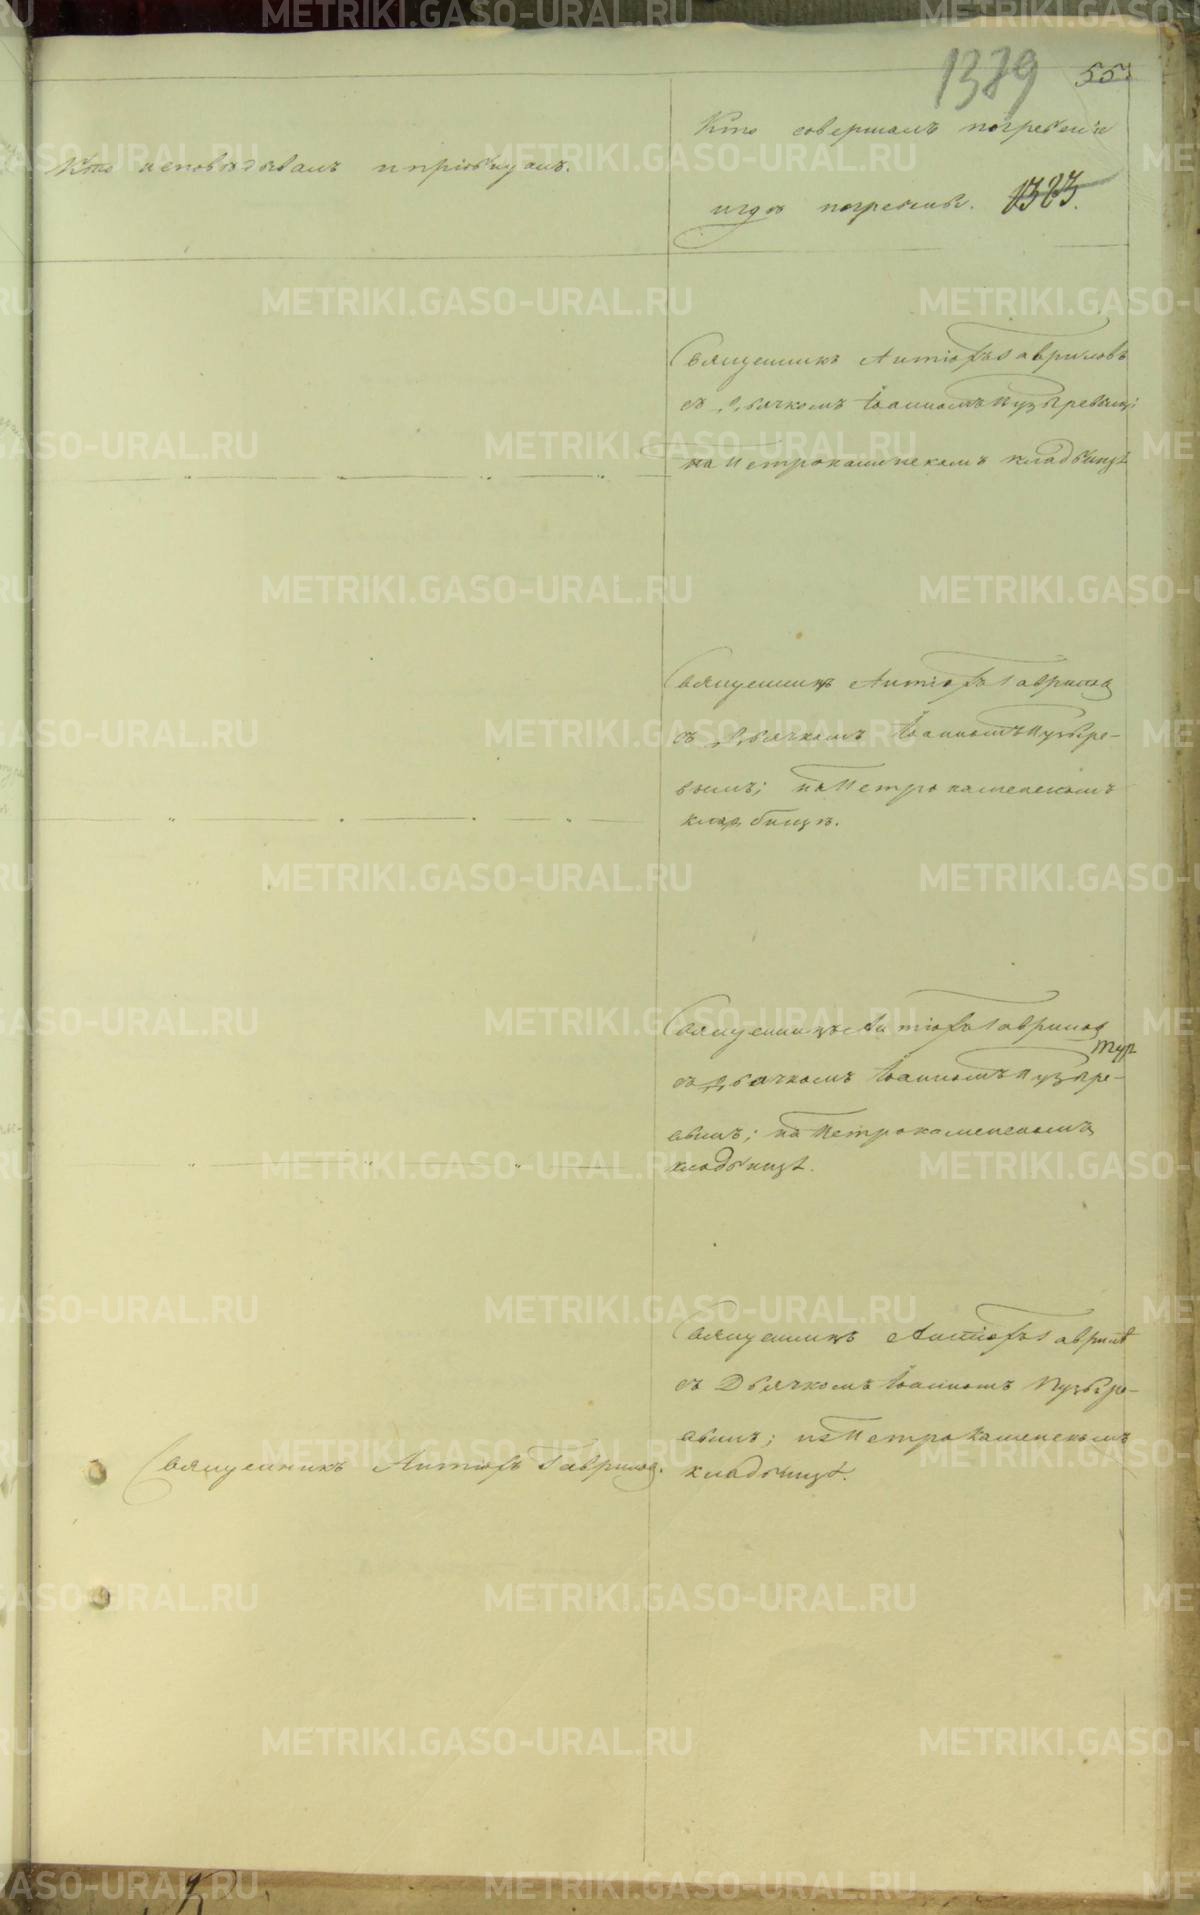 1389 557
Кто исповѣдывалъ и пріобщалъ.
Кто совершалъ погребеніе
и гдѣ погребены. 1383.
Священникъ Антіохъ Гавриловъ
съ Дьячкомъ Іоанномъ Пузыревымъ;
на Петрокаменскомъ кладбищѣ
Священникъ Антіохъ Гаврилов
съ Дьячкомъ Іоанномъ Пузыре-
вымъ; на Петрокаменскомъ
кладбищѣ.
Священникъ Антіохъ Гаврилов
съ Дьячкомъ Іоанномъ Пузыре-
вымъ; на Петрокаменскомъ
кладбищѣ.
Священникъ Антіохъ Гаврилов
съ Дьячкомъ Іоанномъ Пузыре-
вымъ; на Петрокаменскомъ
Священникъ Антіохъ Гаврилов.
кладбищѣ.
METRIKI.GASO-URAL.RU